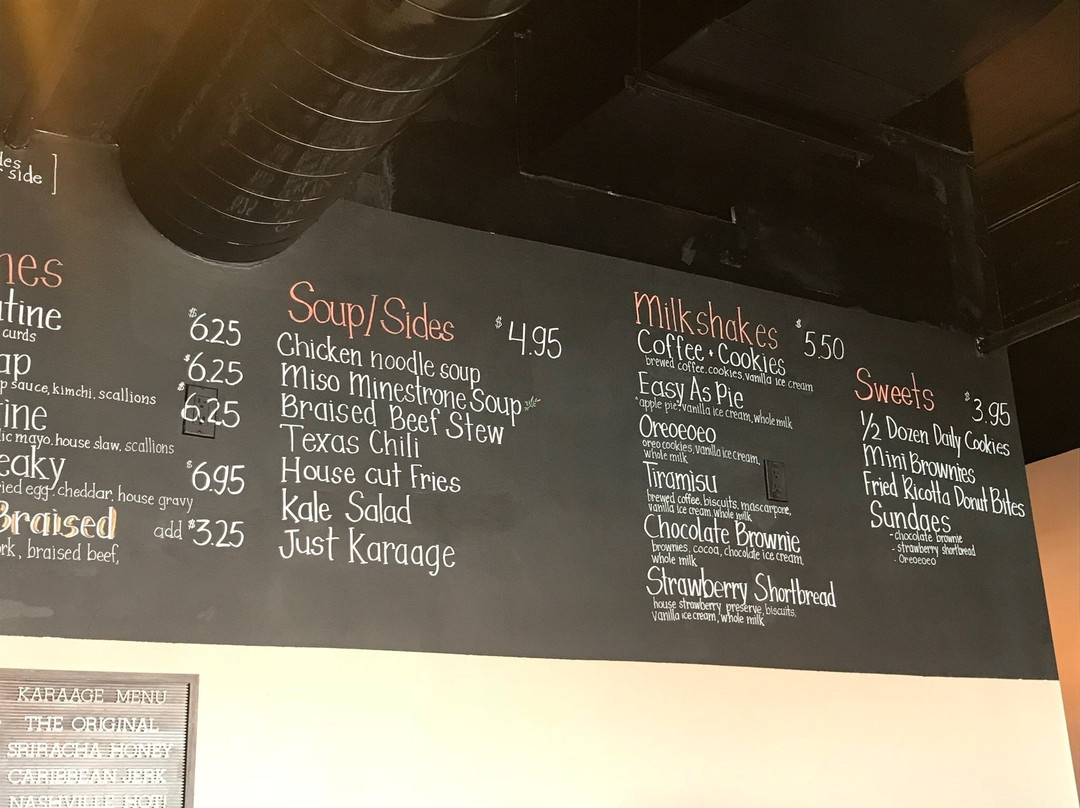 side ]
curds
$6.25
$6.25
sauce, kimchi, scallions
$6.25
mayo, house slaw, scallions
$6.95
egg, cheddar, house gravy
Braised add $3.25
braised beef,
Soup/Sides $4.95
Chicken noodle soup
Miso Minestrone Soup
Braised Beef Stew
Texas Chili
House cut Fries
Kale Salad
Just Karaage
Milkshakes $5.50
Coffee + Cookies
brewed coffee, cookies, vanilla ice cream
Easy As Pie
apple pie, vanilla ice cream, whole milk
Oreoeoeo
oreo cookies, vanilla ice cream,
whole milk
Tiramisu
brewed coffee, biscuits, mascarpone,
vanilla ice cream, whole milk
Chocolate Brownie
brownies, cocoa, chocolate ice cream,
whole milk
Strawberry Shortbread
house strawberry preserve, biscuits,
vanilla ice cream, whole milk
Sweets $3.95
1/2 Dozen Daily Cookies
Mini Brownies
Fried Ricotta Donut Bites
Sundaes
- chocolate brownie
- strawberry shortbread
- Oreoeoeo
KARAAGE MENU
THE ORIGINAL
SRIRACHA HONEY
CARIBBEAN JERK
NASHVILLE HOT!